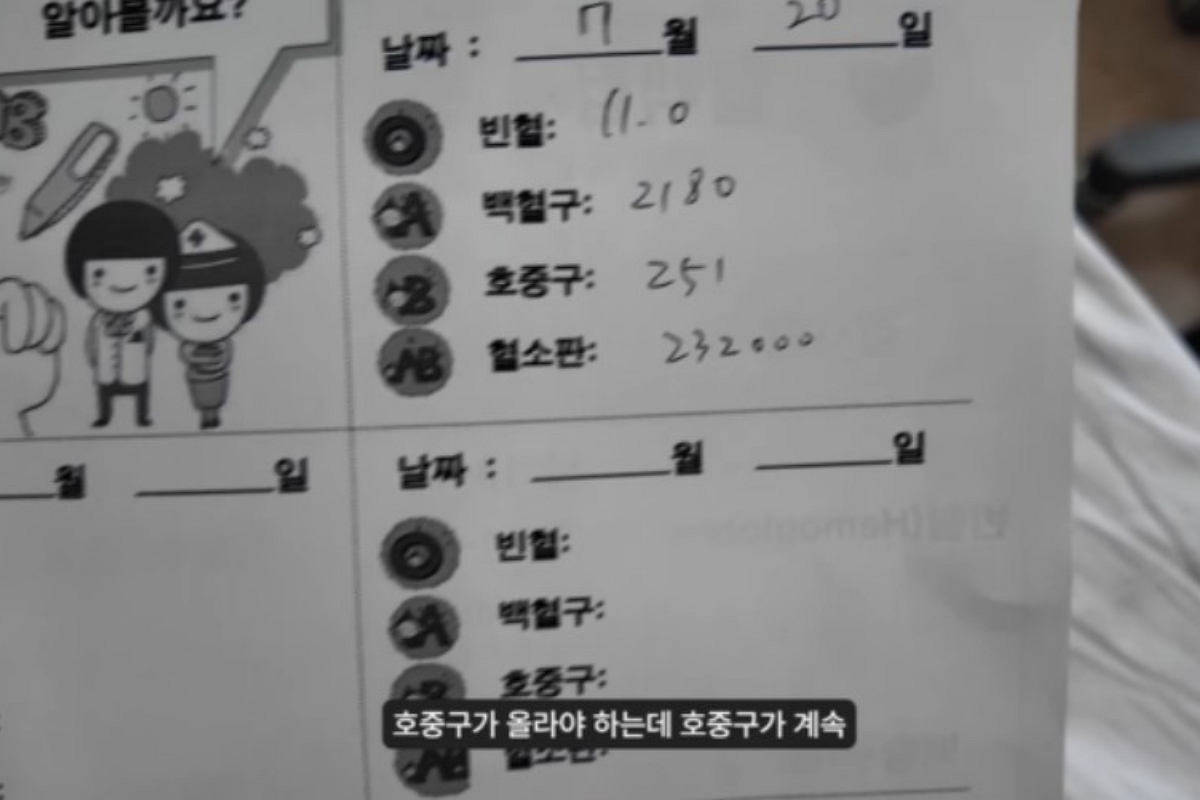 알아볼까요?
날짜 : 7월 20일
빈혈: 11.0
백혈구: 2180
호중구: 251
혈소판: 232000
월 일
날짜 : 월 일
빈혈:
백혈구:
호중구:
혈소판:
호중구가 올라야 하는데 호중구가 계속
O
A
B
AB
O
A
B
AB